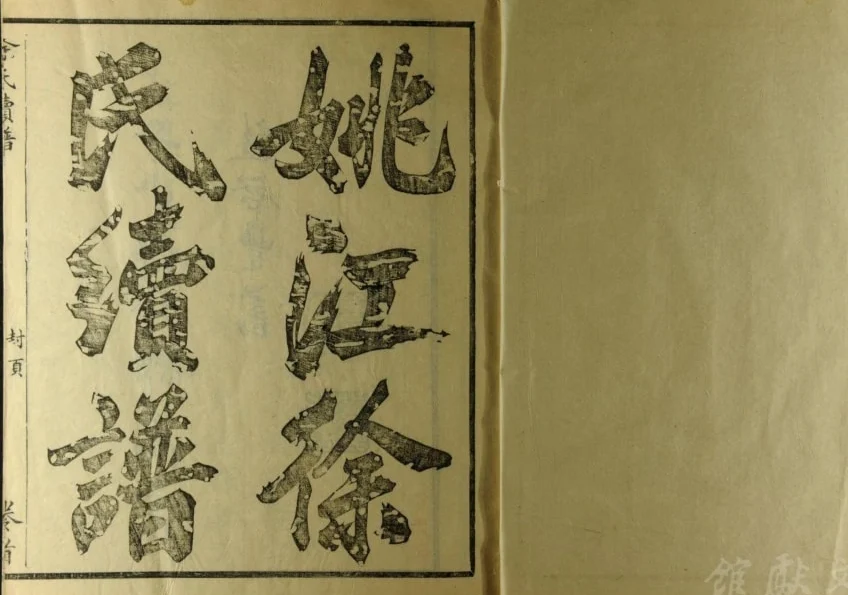 姚江徐
氏續譜
徐氏續譜
封頁
卷首
文獻館